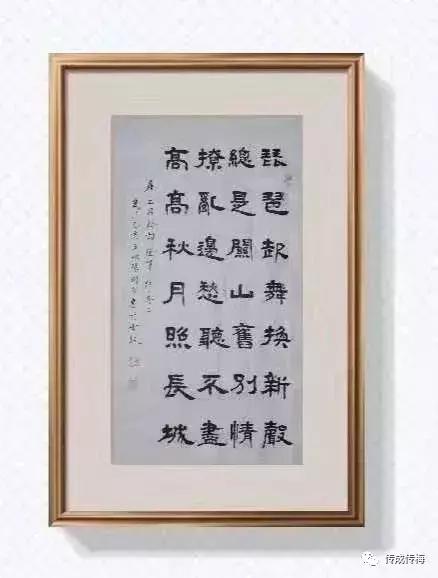 琵琶起舞換新聲
總是關山舊別情
撩亂邊愁聽不盡
高高秋月照長城
传成传梅